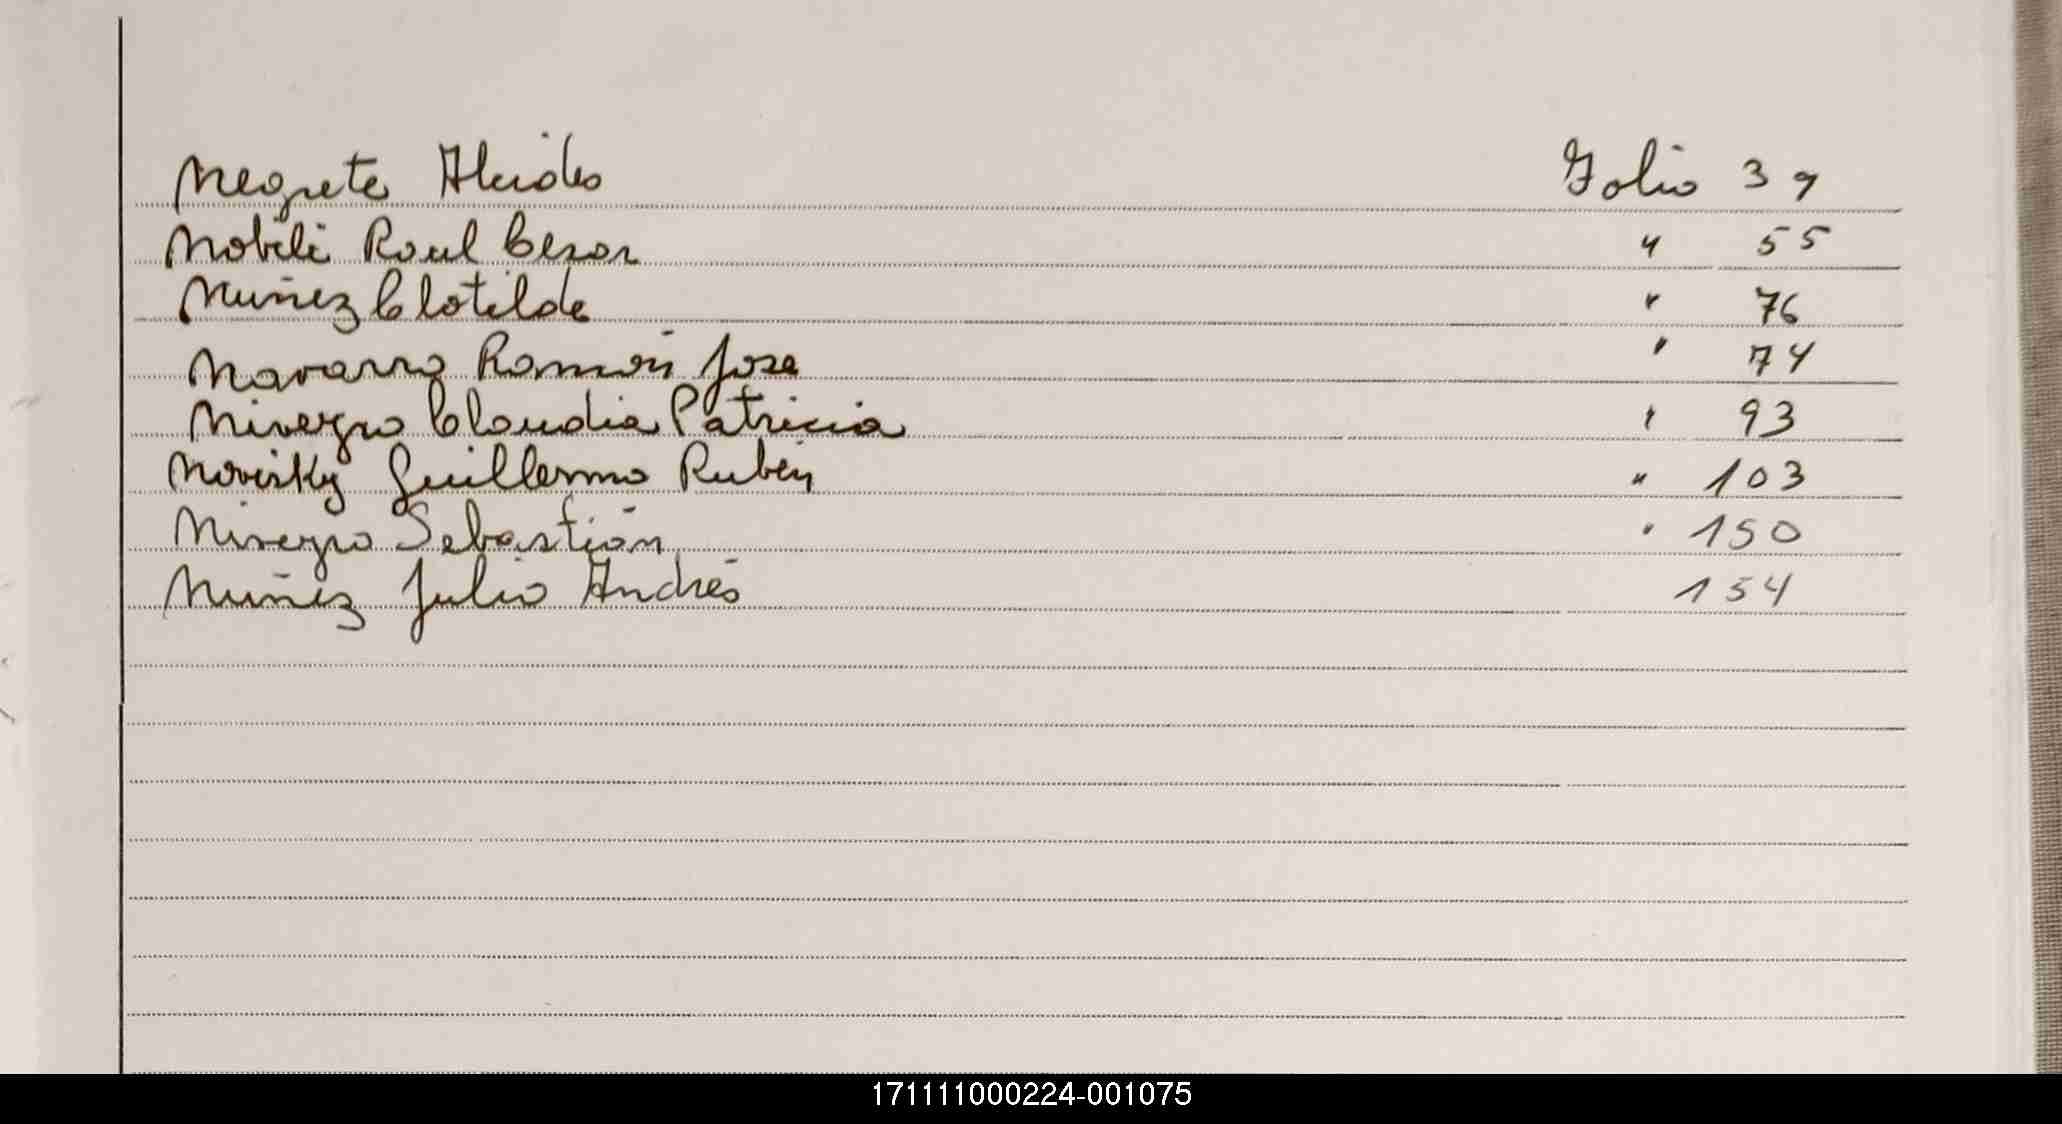 Negrete Alcides Folio 39
Nobili Raul Cesar " 55
Nuñez Clotilde " 76
Navarro Ramón Jose " 74
Niveyro Claudia Patricia " 93
Novisky Guillermo Rubén " 103
Niveyro Sebastián " 150
Nuñez Julio Andrés 154
171111000224-001075